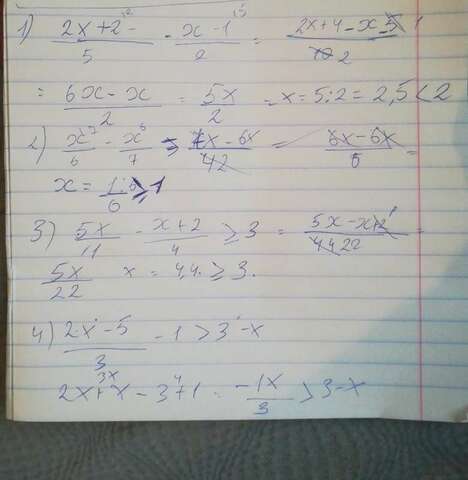 1) (2x+2)/5 - (x-1)/2 = (2x+4-x-5)/(10 2)
= (6x-x)/2 = 5x/2 = x = 5:2 = 2,5 < 2
2) x/6 - x/7 ≥ (7x-6x)/42 = (6x-6x)/6 =
x = 1/6 ≥ 1
3) 5x/11 - (x+2)/4 ≥ 3 = (5x-x+2)/(44 22) =
5x/22 x = 4,4. ≥ 3.
4) (2x-5)/3 - 1 > 3-x
2x+x-3+1 = -1x/3 > 3-x